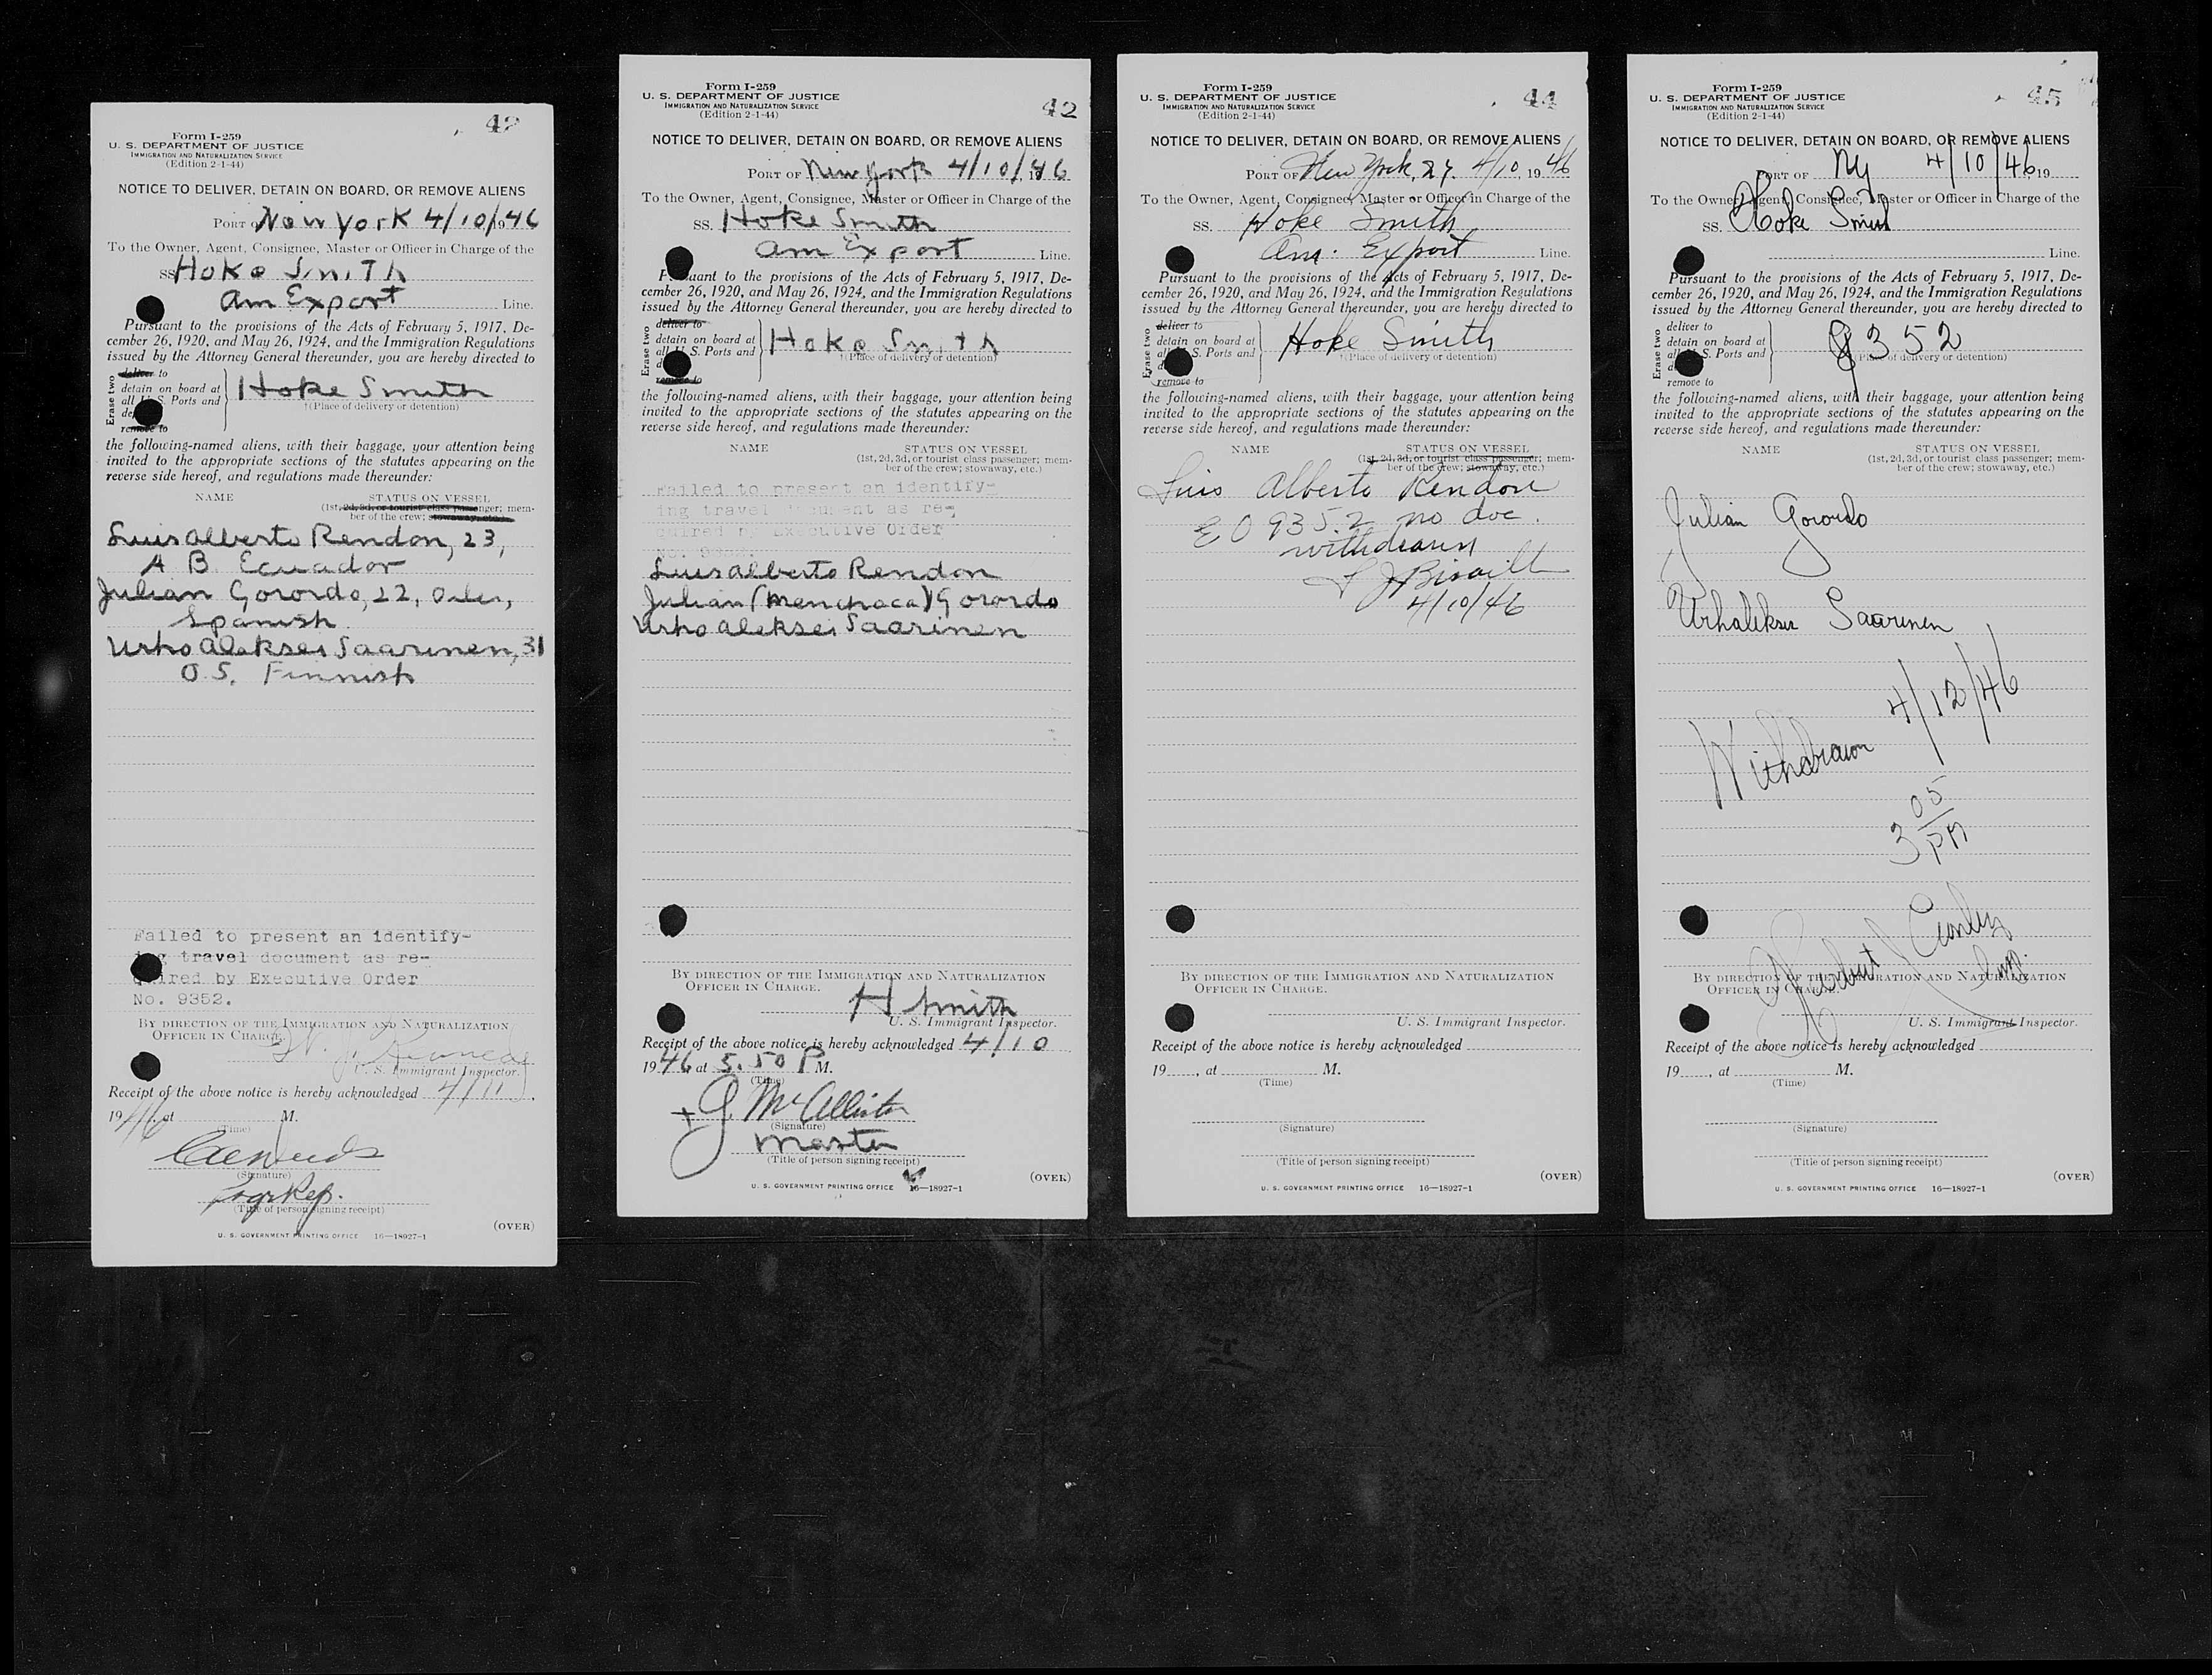 42
Form I-259
U. S. DEPARTMENT OF JUSTICE
IMMIGRATION AND NATURALIZATION SERVICE
(Edition 2-1-44)
NOTICE TO DELIVER, DETAIN ON BOARD, OR REMOVE ALIENS
PORT OF New York 4/10/1946
To the Owner, Agent, Consignee, Master or Officer in Charge of the
SS Hoke Smith
Am Export Line.
Pursuant to the provisions of the Acts of February 5, 1917, De-
cember 26, 1920, and May 26, 1924, and the Immigration Regulations
issued by the Attorney General thereunder, you are hereby directed to
Erase two
deliver to
detain on board at
all U. S. Ports and
remove to
Hoke Smith
†(Place of delivery or detention)
the following-named aliens, with their baggage, your attention being
invited to the appropriate sections of the statutes appearing on the
reverse side hereof, and regulations made thereunder:
NAME STATUS ON VESSEL
(1st, 2d, 3d, or tourist class passenger; mem-
ber of the crew; stowaway, etc.)
Luis Alberto Rendon, 23,
A B Ecuador
Julian Gorordo, 22, Oiler,
Spanish
Urho Aleksei Saarinen, 31
O.S. Finnish
Failed to present an identify-
ing travel document as re-
quired by Executive Order
No. 9352.
BY DIRECTION OF THE IMMIGRATION AND NATURALIZATION
OFFICER IN CHARGE.
U. S. Immigrant Inspector.
Receipt of the above notice is hereby acknowledged 4/11
1946, at M.
(Time)
(Signature)
(Title of person signing receipt)
(OVER)
U. S. GOVERNMENT PRINTING OFFICE 16—18927-1
42
Form I-259
U. S. DEPARTMENT OF JUSTICE
IMMIGRATION AND NATURALIZATION SERVICE
(Edition 2-1-44)
NOTICE TO DELIVER, DETAIN ON BOARD, OR REMOVE ALIENS
PORT OF New York 4/10/1946
To the Owner, Agent, Consignee, Master or Officer in Charge of the
SS. Hoke Smith
Am Export Line.
Pursuant to the provisions of the Acts of February 5, 1917, De-
cember 26, 1920, and May 26, 1924, and the Immigration Regulations
issued by the Attorney General thereunder, you are hereby directed to
Erase two
deliver to
detain on board at
all U. S. Ports and
remove to
Hoke Smith
†(Place of delivery or detention)
the following-named aliens, with their baggage, your attention being
invited to the appropriate sections of the statutes appearing on the
reverse side hereof, and regulations made thereunder:
NAME STATUS ON VESSEL
(1st, 2d, 3d, or tourist class passenger; mem-
ber of the crew; stowaway, etc.)
Failed to present an identify-
ing travel document as re-
quired by Executive Order
No. 9352.
Luis Alberto Rendon
Julian (Menchaca) Gorordo
Urho Aleksei Saarinen
BY DIRECTION OF THE IMMIGRATION AND NATURALIZATION
OFFICER IN CHARGE.
H Smith
U. S. Immigrant Inspector.
Receipt of the above notice is hereby acknowledged 4/10
1946 at 5.50 P M.
(Time)
J. McAllister
(Signature)
Master
(Title of person signing receipt)
(OVER)
U. S. GOVERNMENT PRINTING OFFICE 16—18927-1
44
Form I-259
U. S. DEPARTMENT OF JUSTICE
IMMIGRATION AND NATURALIZATION SERVICE
(Edition 2-1-44)
NOTICE TO DELIVER, DETAIN ON BOARD, OR REMOVE ALIENS
PORT OF New York, N.Y. 4/10, 1946
To the Owner, Agent, Consignee, Master or Officer in Charge of the
SS. Hoke Smith
Am. Export Line.
Pursuant to the provisions of the Acts of February 5, 1917, De-
cember 26, 1920, and May 26, 1924, and the Immigration Regulations
issued by the Attorney General thereunder, you are hereby directed to
Erase two
deliver to
detain on board at
all U. S. Ports and
remove to
Hoke Smith
†(Place of delivery or detention)
the following-named aliens, with their baggage, your attention being
invited to the appropriate sections of the statutes appearing on the
reverse side hereof, and regulations made thereunder:
NAME STATUS ON VESSEL
(1st, 2d, 3d, or tourist class passenger; mem-
ber of the crew; stowaway, etc.)
Luis Alberto Rendon
E O 9352 no doc.
withdrawn
4/10/46
BY DIRECTION OF THE IMMIGRATION AND NATURALIZATION
OFFICER IN CHARGE.
U. S. Immigrant Inspector.
Receipt of the above notice is hereby acknowledged
19 , at M.
(Time)
(Signature)
(Title of person signing receipt)
(OVER)
U. S. GOVERNMENT PRINTING OFFICE 16—18927-1
45
Form I-259
U. S. DEPARTMENT OF JUSTICE
IMMIGRATION AND NATURALIZATION SERVICE
(Edition 2-1-44)
NOTICE TO DELIVER, DETAIN ON BOARD, OR REMOVE ALIENS
PORT OF NY 4/10/46 19
To the Owner, Agent, Consignee, Master or Officer in Charge of the
SS. Hoke Smith
Line.
Pursuant to the provisions of the Acts of February 5, 1917, De-
cember 26, 1920, and May 26, 1924, and the Immigration Regulations
issued by the Attorney General thereunder, you are hereby directed to
Erase two
deliver to
detain on board at
all U. S. Ports and
remove to
9352
(Place of delivery or detention)
the following-named aliens, with their baggage, your attention being
invited to the appropriate sections of the statutes appearing on the
reverse side hereof, and regulations made thereunder:
NAME STATUS ON VESSEL
(1st, 2d, 3d, or tourist class passenger; mem-
ber of the crew; stowaway, etc.)
Julian Gorordo
Urhaleksei Saarinen
Withdrawn 4/12/46
3 05 PM
BY DIRECTION OF THE IMMIGRATION AND NATURALIZATION
OFFICER IN CHARGE.
U. S. Immigrant Inspector.
Receipt of the above notice is hereby acknowledged
19 , at M.
(Time)
(Signature)
(Title of person signing receipt)
(OVER)
U. S. GOVERNMENT PRINTING OFFICE 16—18927-1